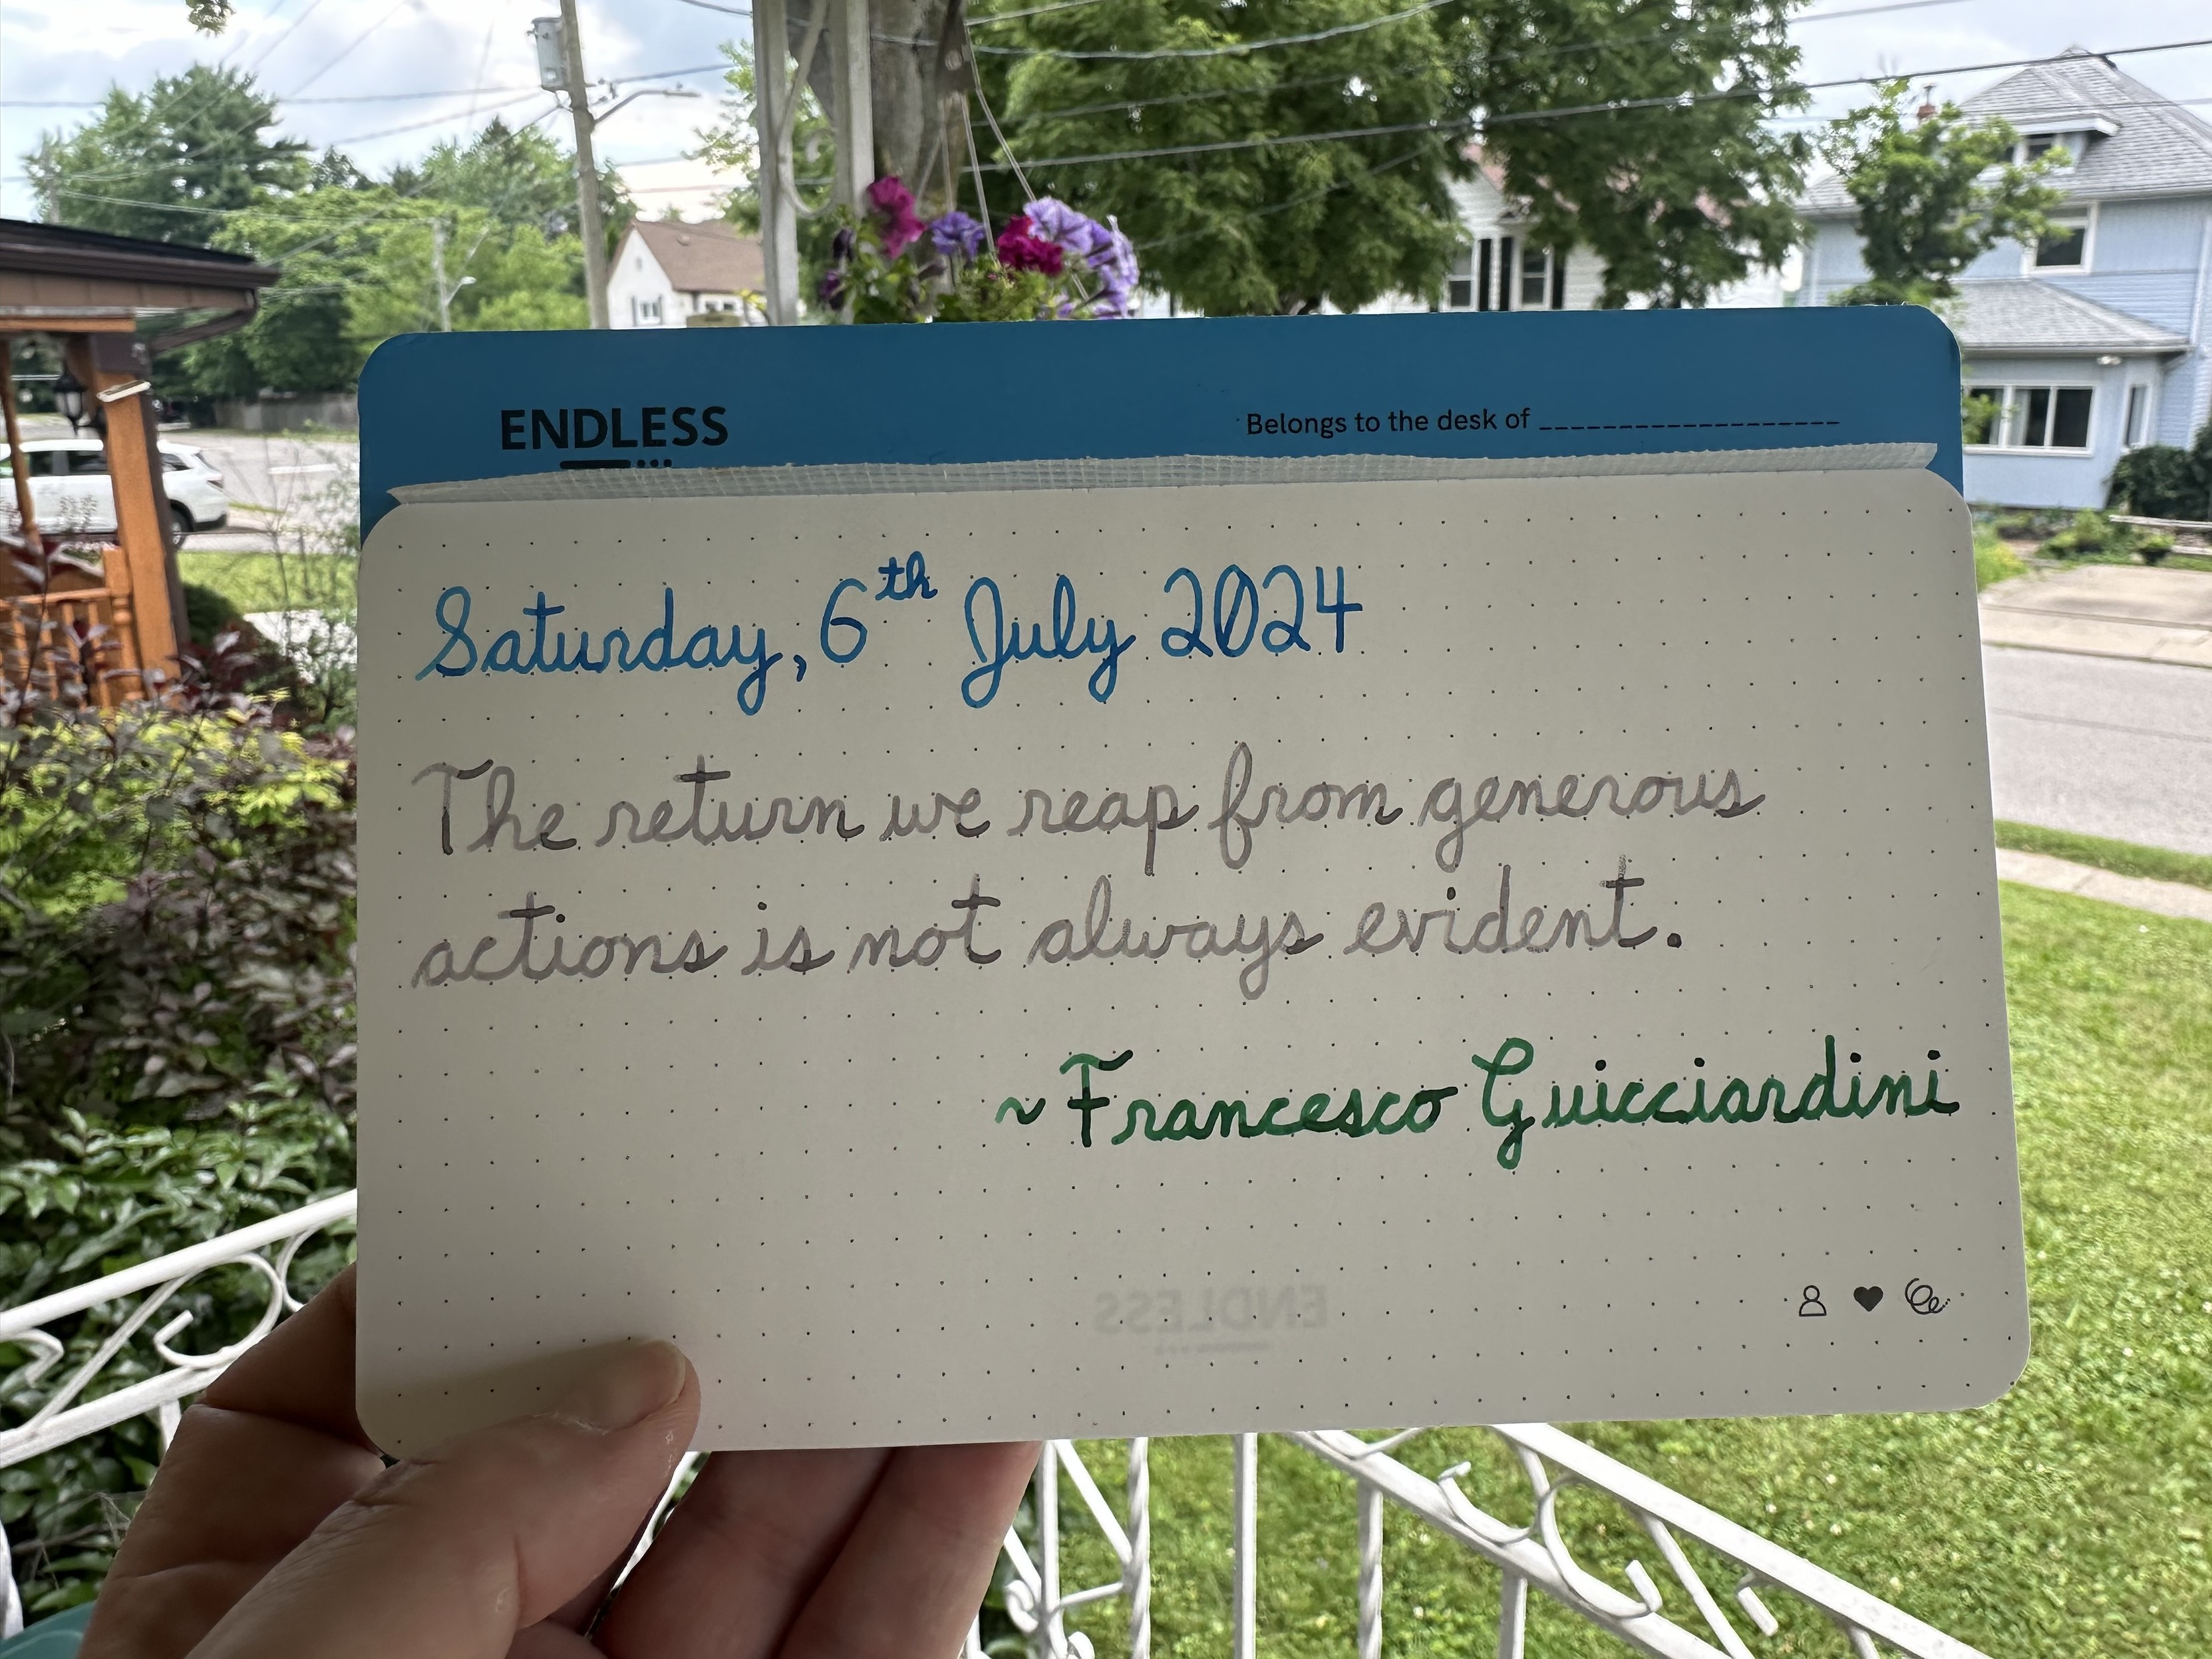 ENDLESS
Belongs to the desk of ____________________
Saturday, 6th July 2024
The return we reap from generous
actions is not always evident.
~Francesco Guicciardini
ENDLESS